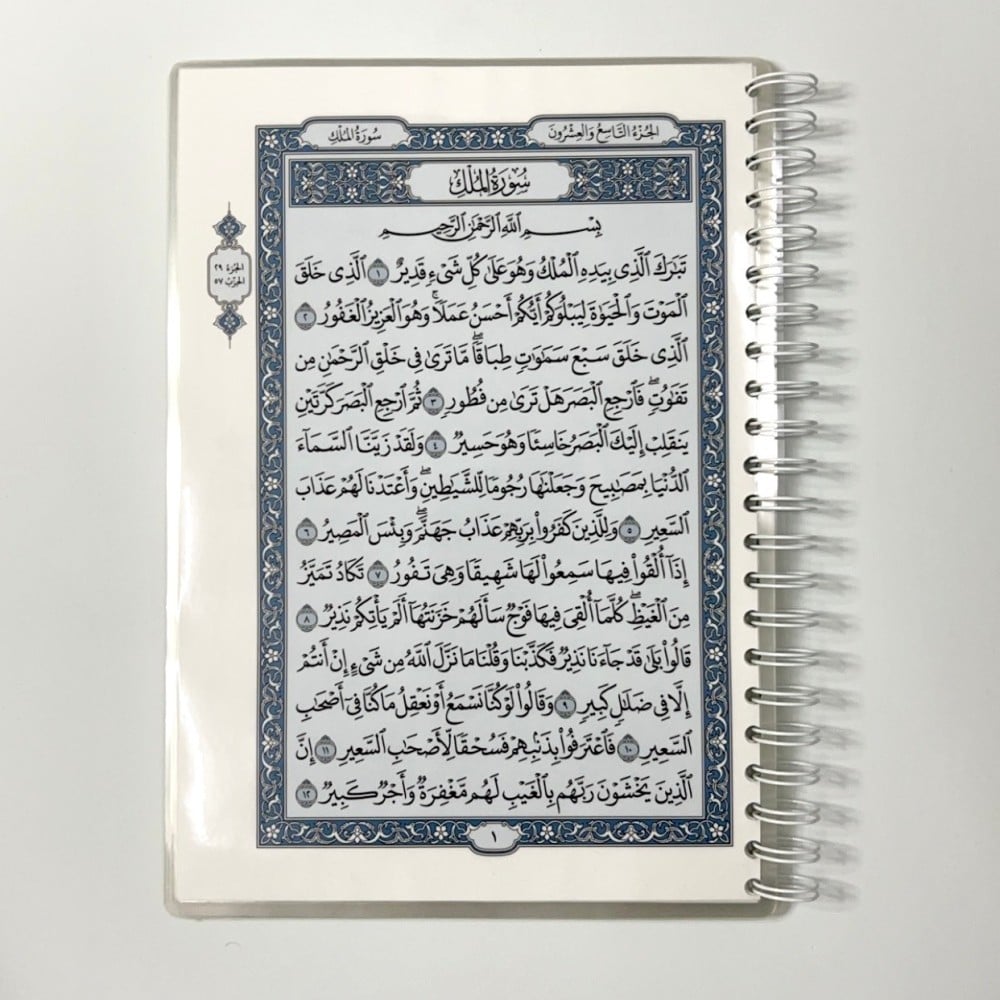 الجُزْءُ التَّاسِعُ وَالعِشْرُونَ
سُورَةُ المُلْكِ
سُورَةُ المُلْكِ
بِسْمِ ٱللَّهِ ٱلرَّحْمَٰنِ ٱلرَّحِيمِ
تَبَٰرَكَ ٱلَّذِى بِيَدِهِ ٱلْمُلْكُ وَهُوَ عَلَىٰ كُلِّ شَىْءٍ قَدِيرٌ ١ ٱلَّذِى خَلَقَ
ٱلْمَوْتَ وَٱلْحَيَوٰةَ لِيَبْلُوَكُمْ أَيُّكُمْ أَحْسَنُ عَمَلًا ۚ وَهُوَ ٱلْعَزِيزُ ٱلْغَفُورُ ٢
ٱلَّذِى خَلَقَ سَبْعَ سَمَٰوَٰتٍ طِبَاقًا ۖ مَّا تَرَىٰ فِى خَلْقِ ٱلرَّحْمَٰنِ مِن
تَفَٰوُتٍ ۖ فَٱرْجِعِ ٱلْبَصَرَ هَلْ تَرَىٰ مِن فُطُورٍ ٣ ثُمَّ ٱرْجِعِ ٱلْبَصَرَ كَرَّتَيْنِ
يَنقَلِبْ إِلَيْكَ ٱلْبَصَرُ خَاسِئًا وَهُوَ حَسِيرٌ ٤ وَلَقَدْ زَيَّنَّا ٱلسَّمَآءَ
ٱلدُّنْيَا بِمَصَٰبِيحَ وَجَعَلْنَٰهَا رُجُومًا لِّلشَّيَٰطِينِ ۖ وَأَعْتَدْنَا لَهُمْ عَذَابَ
ٱلسَّعِيرِ ٥ وَلِلَّذِينَ كَفَرُوا۟ بِرَبِّهِمْ عَذَابُ جَهَنَّمَ ۖ وَبِئْسَ ٱلْمَصِيرُ ٦
إِذَآ أُلْقُوا۟ فِيهَا سَمِعُوا۟ لَهَا شَهِيقًا وَهِىَ تَفُورُ ٧ تَكَادُ تَمَيَّزُ
مِنَ ٱلْغَيْظِ ۖ كُلَّمَآ أُلْقِىَ فِيهَا فَوْجٌ سَأَلَهُمْ خَزَنَتُهَآ أَلَمْ يَأْتِكُمْ نَذِيرٌ ٨
قَالُوا۟ بَلَىٰ قَدْ جَآءَنَا نَذِيرٌ فَكَذَّبْنَا وَقُلْنَا مَا نَزَّلَ ٱللَّهُ مِن شَىْءٍ إِنْ أَنتُمْ
إِلَّا فِى ضَلَٰلٍ كَبِيرٍ ٩ وَقَالُوا۟ لَوْ كُنَّا نَسْمَعُ أَوْ نَعْقِلُ مَا كُنَّا فِىٓ أَصْحَٰبِ
ٱلسَّعِيرِ ١٠ فَٱعْتَرَفُوا۟ بِذَنۢبِهِمْ فَسُحْقًا لِّأَصْحَٰبِ ٱلسَّعِيرِ ١١ إِنَّ
ٱلَّذِينَ يَخْشَوْنَ رَبَّهُم بِٱلْغَيْبِ لَهُم مَّغْفِرَةٌ وَأَجْرٌ كَبِيرٌ ١٢
١
الجُزْءُ ٢٩
الحِزْبُ ٥٧